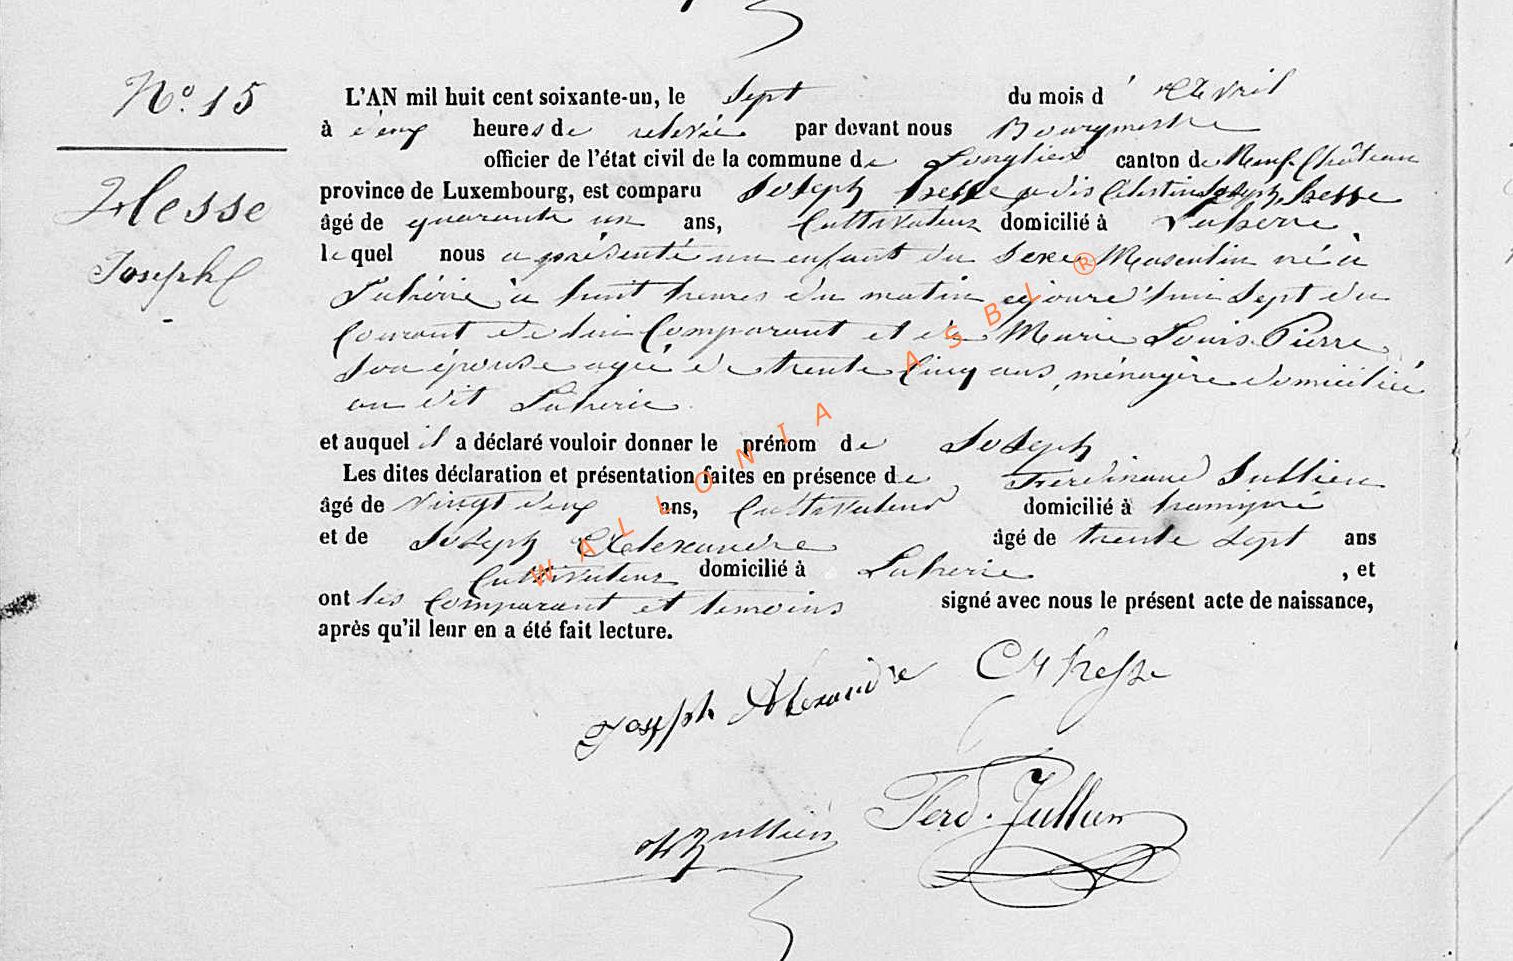 N° 15
Hesse
Joseph
L'AN mil huit cent soixante-un, le sept du mois d'Avril
à deux heures de relevée par devant nous Bourgmestre
officier de l'état civil de la commune de Longlier canton de Neufchâteau
province de Luxembourg, est comparu Joseph Hesse dis Célestin Joseph Hesse
âgé de quarante un ans, Cultivateur domicilié à Laherie,
lequel nous a présenté un enfant du sexe Masculin né à
Lahérie à huit heures du matin cejourd'hui sept du
Courant de lui Comparant et de Marie Louis Pierre
son épouse agée de trente Cinq ans, ménagère domiciliée
au dit Laherie
et auquel il a déclaré vouloir donner le prénom de Joseph
Les dites déclaration et présentation faites en présence de Ferdinand Jullien
âgé de vingt deux ans, Cultivateur domicilié à
et de Joseph Alexandre âgé de trente sept ans
Cultivateur domicilié à Laherie, et
ont les Comparant et temoins signé avec nous le présent acte de naissance,
après qu'il leur en a été fait lecture.
Joseph Alexandre Hesse
Jullien Ferd. Jullien
WALLONIA ASBL ®